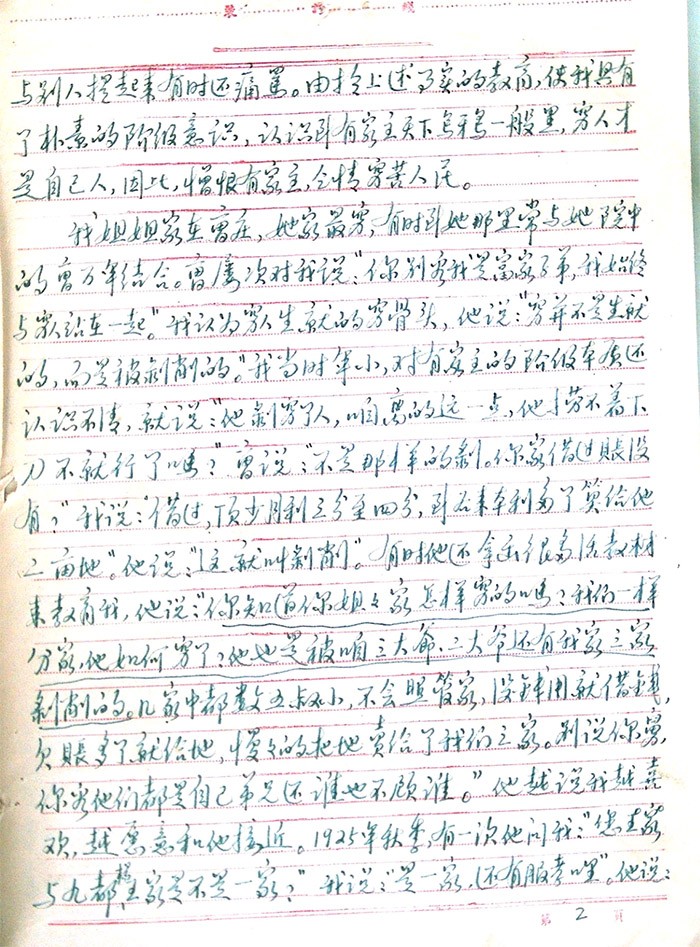 装订线
与别人提起来有时还痛骂。由于上述事实的教育，使我具有
了朴素的阶级意识，认识到有家主天下乌鸦一般黑，穷人才
是自己人，因此，憎恨有家主，同情穷苦人民。
我姐姐家在曹庄，她家最穷，有时到她那里常与她院中
的曹万年结合。曹屡次对我说：“你别看我是富家子弟，我始终
与穷人站在一起”。我认为穷人生就的穷骨头，他说：“穷并不是生就
的，而是被剥削的。”我当时年小，对有家主的阶级本质还
认识不清，就说：“他剥穷人，咱离的远一点，他捞不着下
刀不就行了吗？”曹说：“不是那样的剥。你家借过账没
有？”我说：“借过，顶少月利三分至四分，到后来本利多了算给他
二亩地”。他说：“这就叫剥削”。有时他还拿出很多活教材
来教育我，他说：“你知道你姐姐家怎样穷的吗？我们一样
分家，他如何穷了？他也是被咱三大爷、二大爷还有我家三家
剥削的。几家中都数五叔小，不会照管家，没钱用就借钱，
欠账多了就给地，慢慢的把地卖给了我们三家。别说你舅，
你看他们都是自己弟兄还谁也不顾谁。”他越说我越喜
欢，越愿意和他接近。1925年秋季，有一次他问我：“您家
与九都杨家是不是一家？”我说：“是一家，还有服孝哩”。他说：
第 2 页